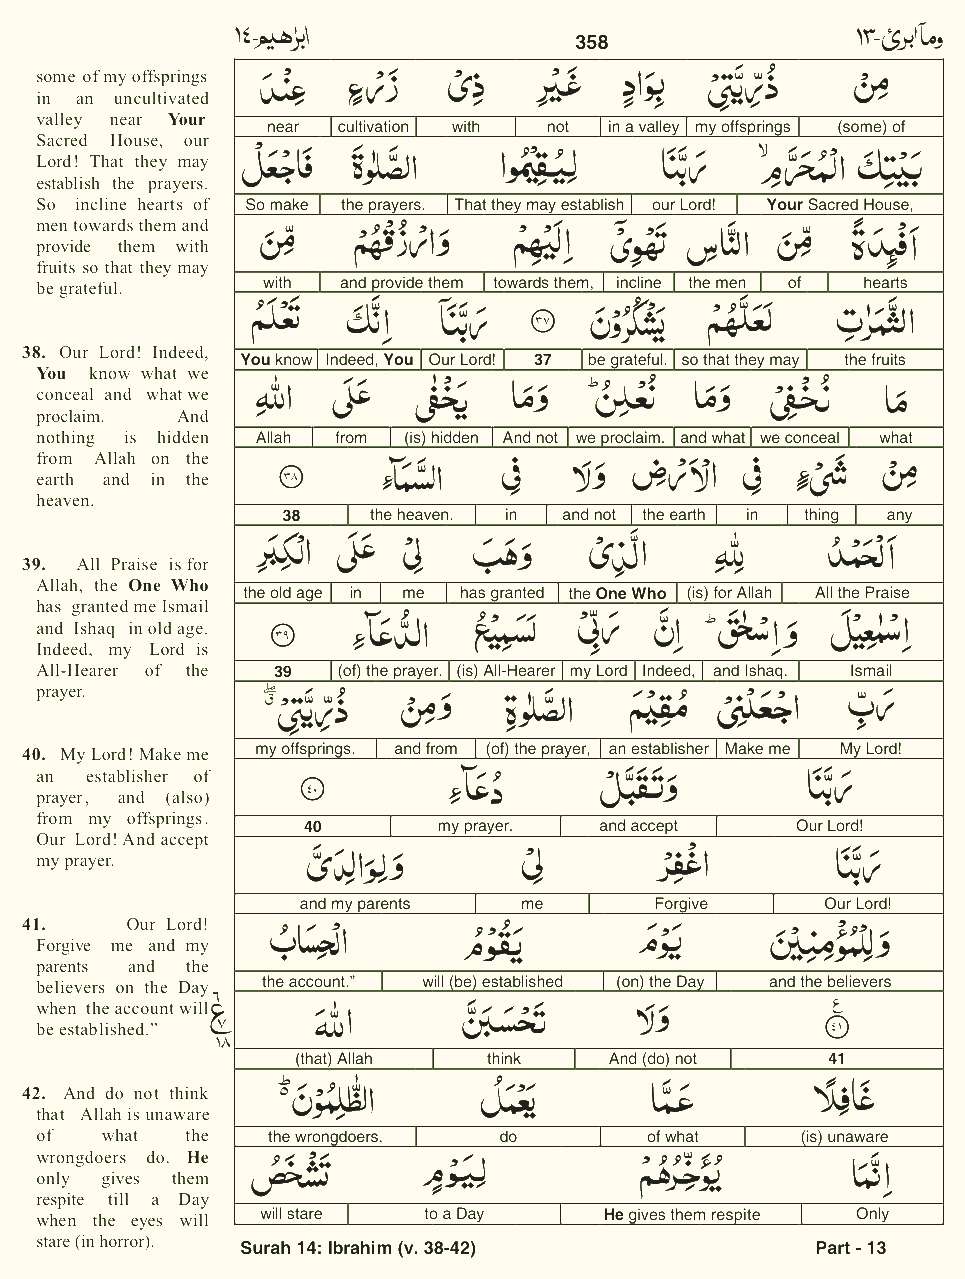 ابرٰهيم-١٤
358
ومآ ابرئ-١٣
some of my offsprings
in an uncultivated
valley near Your
Sacred House, our
Lord! That they may
establish the prayers.
So incline hearts of
men towards them and
provide them with
fruits so that they may
be grateful.
38. Our Lord! Indeed,
You know what we
conceal and what we
proclaim. And
nothing is hidden
from Allah on the
earth and in the
heaven.
39. All Praise is for
Allah, the One Who
has granted me Ismail
and Ishaq in old age.
Indeed, my Lord is
All-Hearer of the
prayer.
40. My Lord! Make me
an establisher of
prayer, and (also)
from my offsprings.
Our Lord! And accept
my prayer.
41. Our Lord!
Forgive me and my
parents and the
believers on the Day
when the account will
be established.”
42. And do not think
that Allah is unaware
of what the
wrongdoers do. He
only gives them
respite till a Day
when the eyes will
stare (in horror).
مِنْ ذُرِّيَّتِيْ بِوَادٍ غَيْرِ ذِيْ زَرْعٍ عِنْدَ
near cultivation with not in a valley my offsprings (some) of
بَيْتِكَ الْمُحَرَّمِ ۙ رَبَّنَا لِيُقِيْمُوا الصَّلٰوةَ فَاجْعَلْ
So make the prayers. That they may establish our Lord! Your Sacred House,
اَفْـِٕدَةً مِّنَ النَّاسِ تَهْوِيْٓ اِلَيْهِمْ وَارْزُقْهُمْ مِّنَ
with and provide them towards them, incline the men of hearts
الثَّمَرٰتِ لَعَلَّهُمْ يَشْكُرُوْنَ ٣٧ رَبَّنَآ اِنَّكَ تَعْلَمُ
You know Indeed, You Our Lord! 37 be grateful. so that they may the fruits
مَا نُخْفِيْ وَمَا نُعْلِنُ ؕ وَمَا يَخْفٰى عَلَى اللّٰهِ
Allah from (is) hidden And not we proclaim. and what we conceal what
مِنْ شَيْءٍ فِي الْاَرْضِ وَلَا فِي السَّمَآءِ ٣٨
38 the heaven. in and not the earth in thing any
اَلْحَمْدُ لِلّٰهِ الَّذِيْ وَهَبَ لِيْ عَلَى الْكِبَرِ
the old age in me has granted the One Who (is) for Allah All the Praise
اِسْمٰعِيْلَ وَاِسْحٰقَ ؕ اِنَّ رَبِّيْ لَسَمِيْعُ الدُّعَآءِ ٣٩
39 (of) the prayer. (is) All-Hearer my Lord Indeed, and Ishaq. Ismail
رَبِّ اجْعَلْنِيْ مُقِيْمَ الصَّلٰوةِ وَمِنْ ذُرِّيَّتِيْ ۖق
my offsprings. and from (of) the prayer, an establisher Make me My Lord!
رَبَّنَا وَتَقَبَّلْ دُعَآءِ ٤٠
40 my prayer. and accept Our Lord!
رَبَّنَا اغْفِرْ لِيْ وَلِوَالِدَيَّ
and my parents me Forgive Our Lord!
وَلِلْمُؤْمِنِيْنَ يَوْمَ يَقُوْمُ الْحِسَابُ
the account.” will (be) established (on) the Day and the believers
٤١ ع وَلَا تَحْسَبَنَّ اللّٰهَ
ع ٦ ٧ ١٨
(that) Allah think And (do) not 41
غَافِلًا عَمَّا يَعْمَلُ الظّٰلِمُوْنَ ؕ
the wrongdoers. do of what (is) unaware
اِنَّمَا يُؤَخِّرُهُمْ لِيَوْمٍ تَشْخَصُ
will stare to a Day He gives them respite Only
Surah 14: Ibrahim (v. 38-42) Part - 13